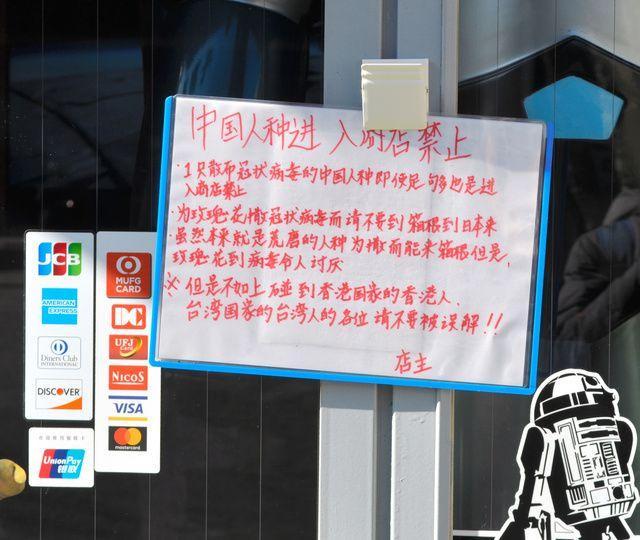 中国人种进 入商店禁止
·1只散布冠状病毒的中国人种即使足够也是进
入商店禁止
·为玫瑰花撒冠状病毒而请不要到箱根到日本来
·虽然本来就是荒唐的人种为撒而能来箱根但是,
玫瑰花到病毒令人讨厌
※但是不加上碰到香港国家的香港人、
台湾国家的台湾人的各位请不要被误解!!
店主
JCB
AMERICAN
EXPRESS
Diners Club
INTERNATIONAL
DISCOVER
UnionPay
银联
MUFG
CARD
DC
UFJ
Card
NICOS
VISA
mastercard